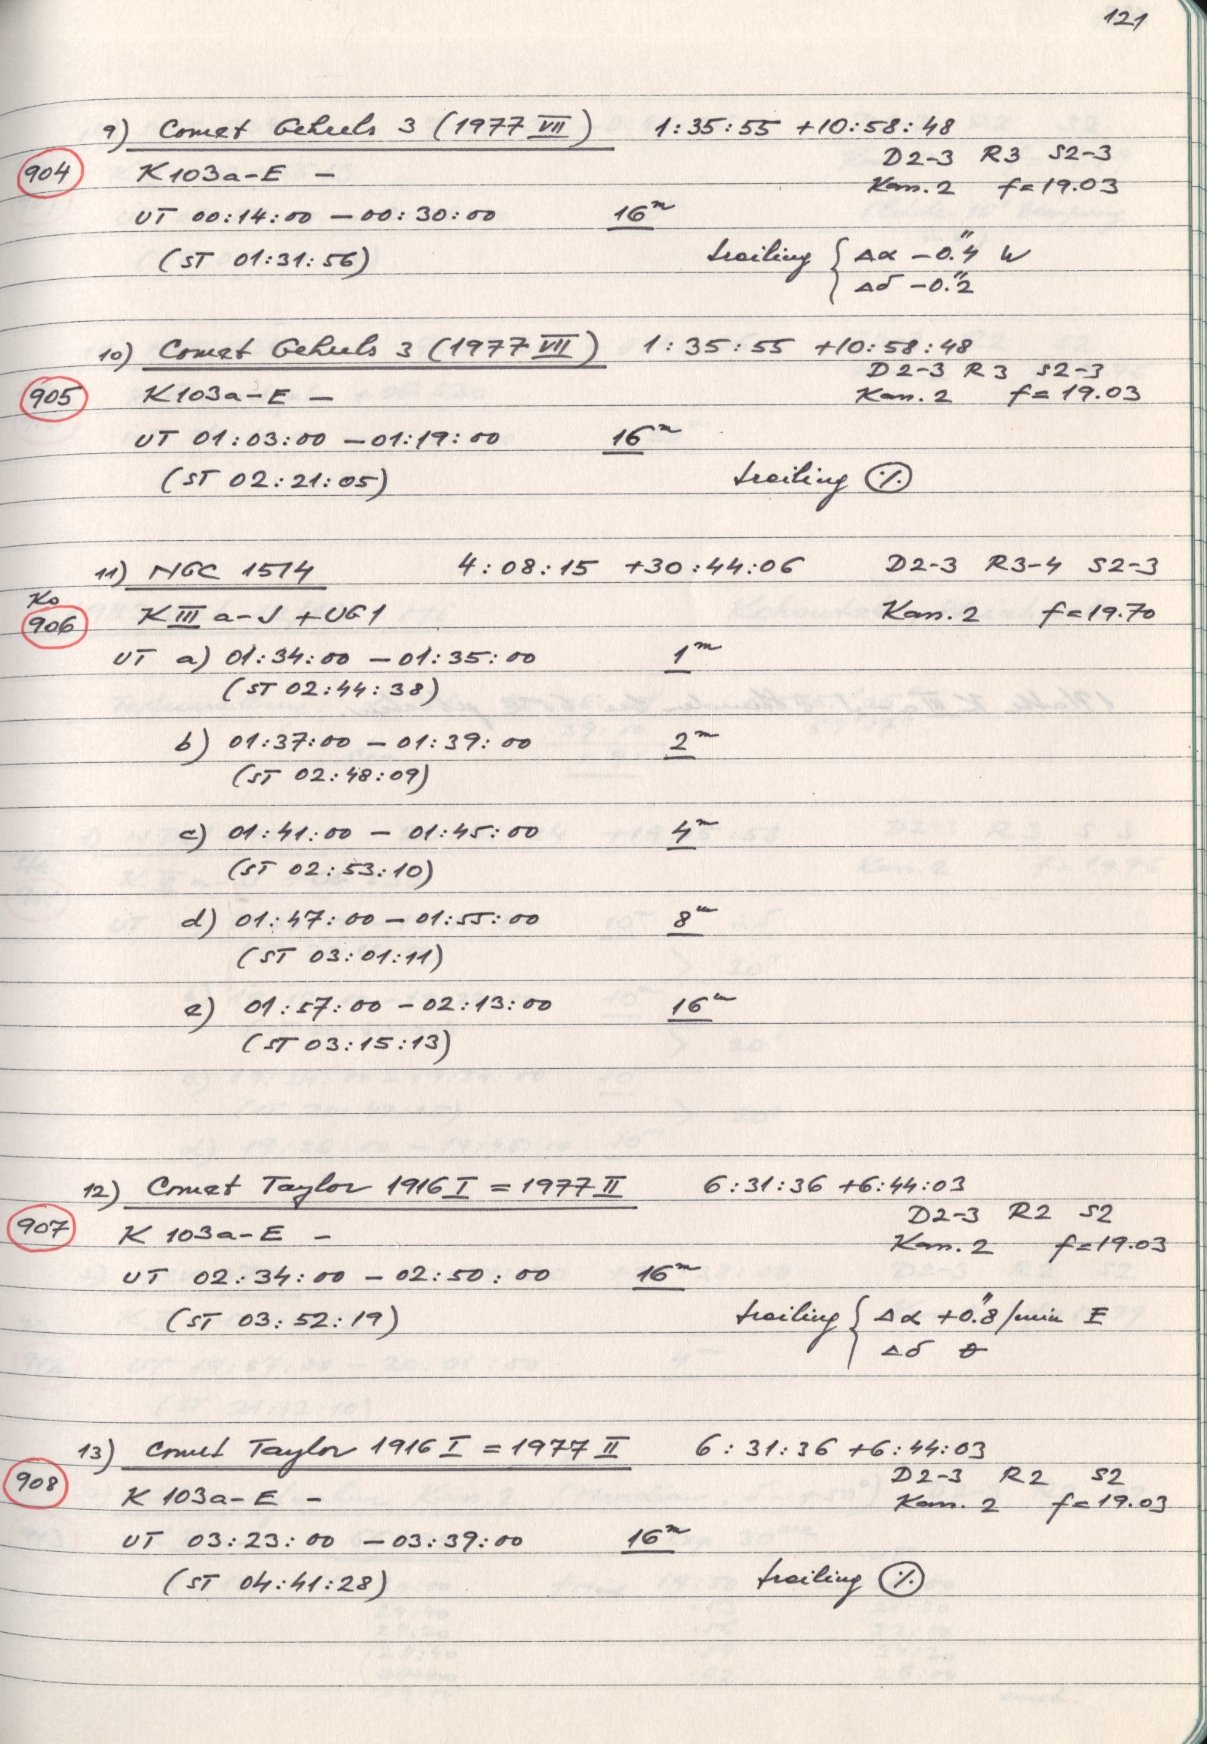 121
9) Comet Gehrels 3 (1977 VII) 1:35:55 +10:58:48
D2-3 R3 S2-3
904 K103a-E - Kan. 2 f=19.03
UT 00:14:00 - 00:30:00 16m
(ST 01:31:56) trailing { Δα -0."4 W
Δδ -0."2
10) Comet Gehrels 3 (1977 VII) 1:35:55 +10:58:48
D2-3 R3 S2-3
905 K103a-E - Kan. 2 f=19.03
UT 01:03:00 - 01:19:00 16m
(ST 02:21:05) trailing ٪
11) NGC 1514 4:08:15 +30:44:06 D2-3 R3-4 S2-3
Ko
906 K III a-J + UG1 Kan. 2 f=19.70
UT a) 01:34:00 - 01:35:00 1m
(ST 02:44:38)
b) 01:37:00 - 01:39:00 2m
(ST 02:48:09)
c) 01:41:00 - 01:45:00 4m
(ST 02:53:10)
d) 01:47:00 - 01:55:00 8m
(ST 03:01:11)
e) 01:57:00 - 02:13:00 16m
(ST 03:15:13)
12) Comet Taylor 1916 I = 1977 II 6:31:36 +6:44:03
D2-3 R2 S2
907 K 103a-E - Kam. 2 f=19.03
UT 02:34:00 - 02:50:00 16m
(ST 03:52:19) trailing { Δα +0."8/min E
Δδ 0
13) Comet Taylor 1916 I = 1977 II 6:31:36 +6:44:03
D2-3 R2 S2
908 K 103a-E - Kam. 2 f=19.03
UT 03:23:00 - 03:39:00 16m
(ST 04:41:28) trailing ٪